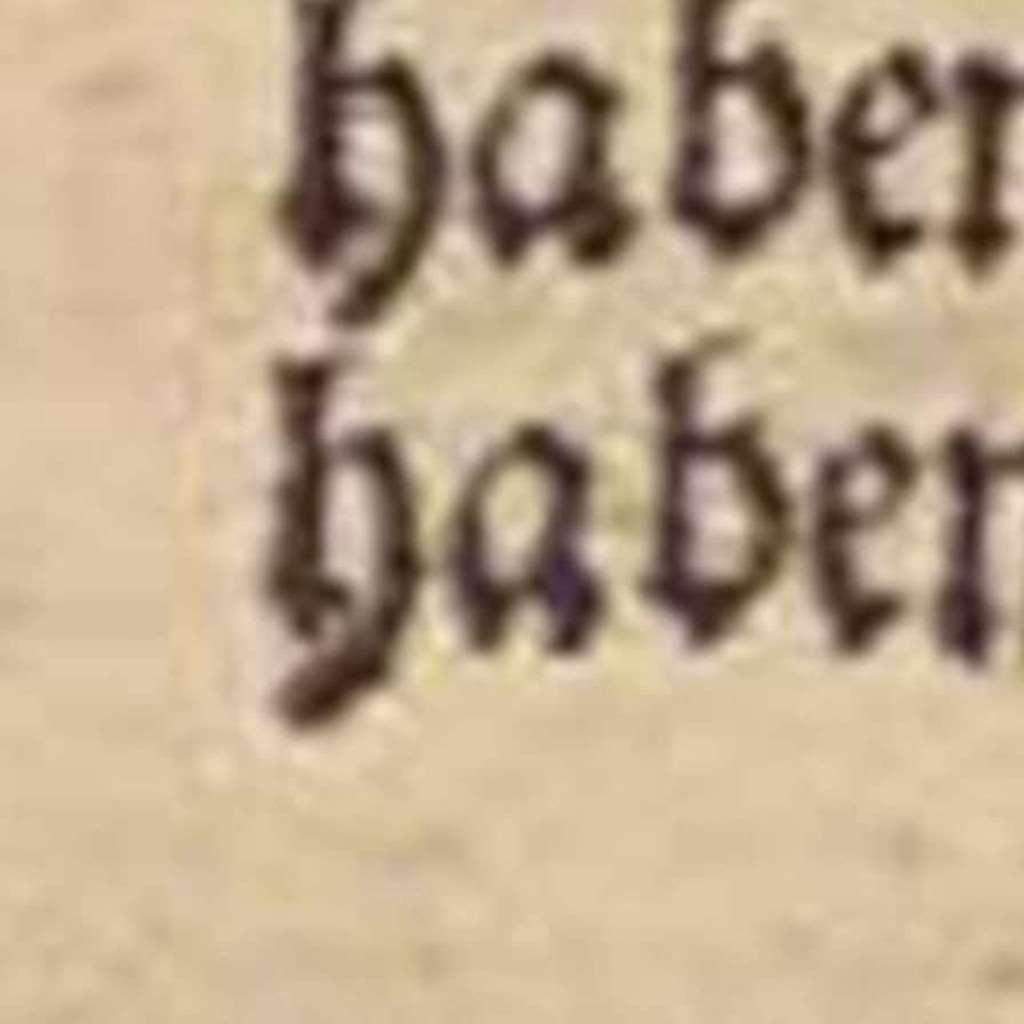 haber
haber